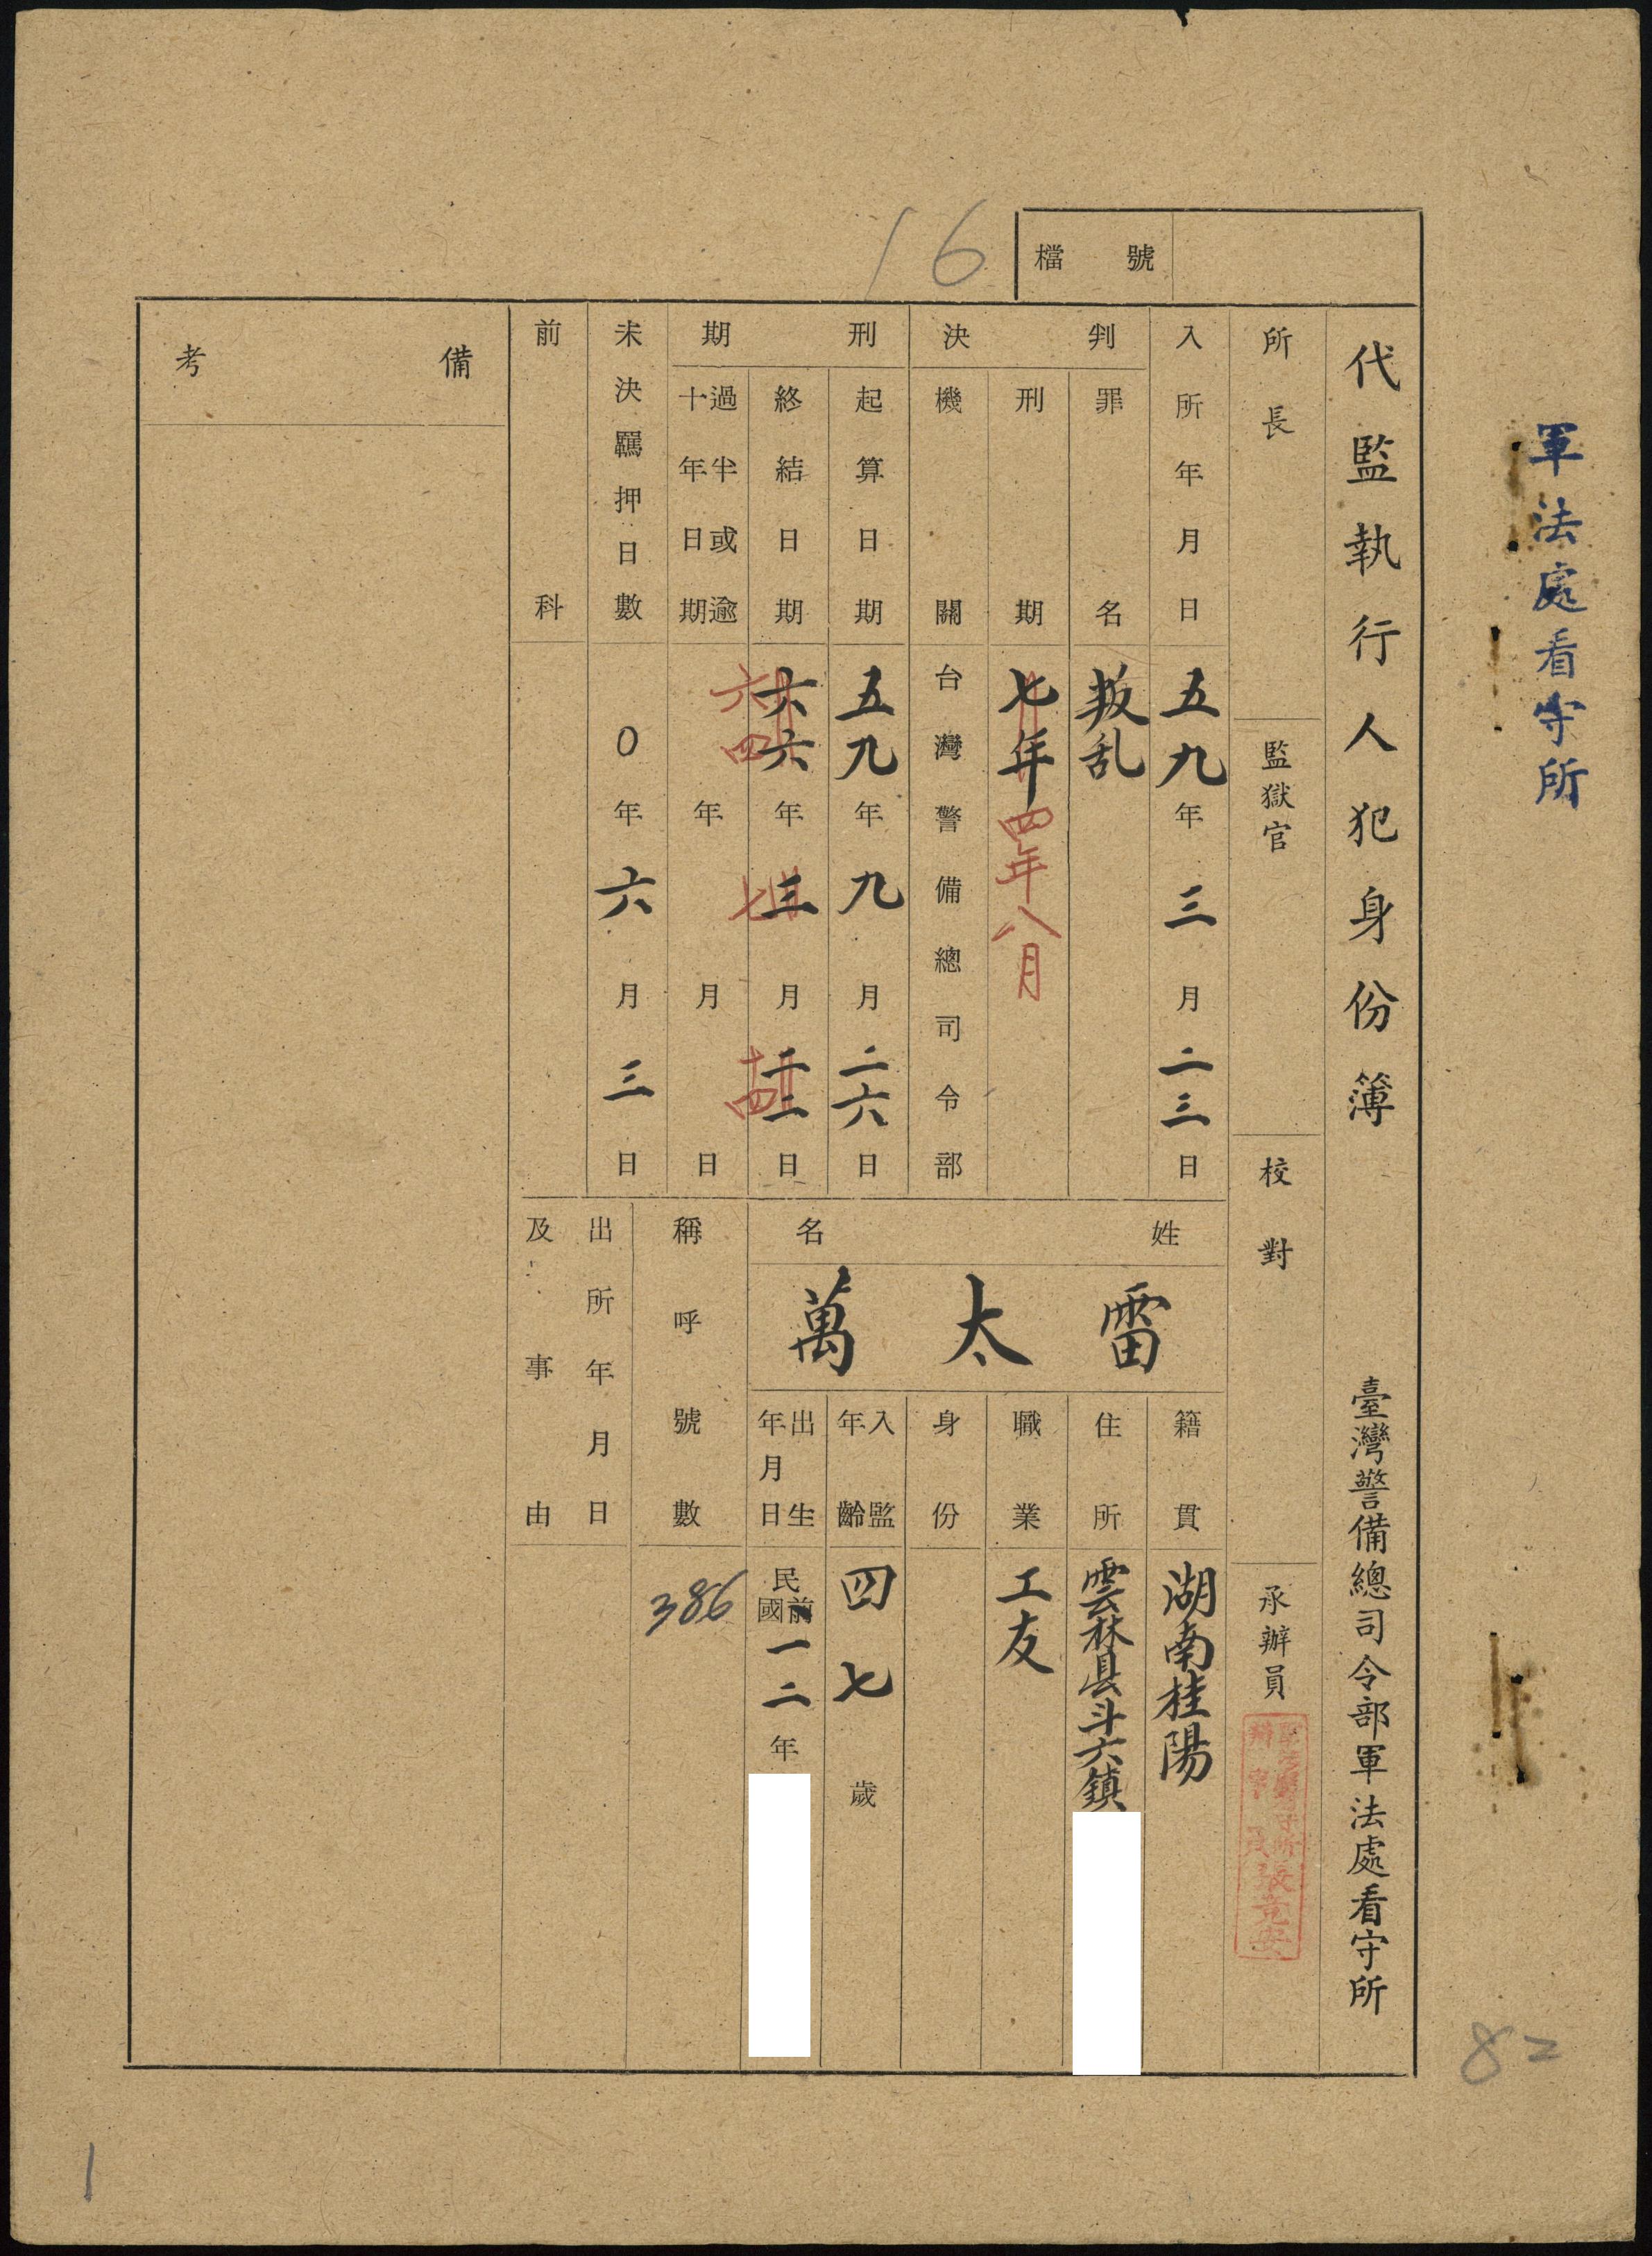 軍法處看守所
檔號
16
代監執行人犯身份簿 臺灣警備總司令部軍法處看守所
所長
監獄官
校對
承辦員
張
入所年月日 五九年三月二三日
判決
罪名 叛乱
刑期 七年 四年八月
機關 台灣警備總司令部
刑期
起算日期 五九年九月二六日
終結日期 六六年三月二三日
六四 七 十四
過半或逾十年日期 年月日
未決羈押日數 0年六月三日
前科
姓名
雷太萬
籍貫 湖南桂陽
住所 雲林县斗六鎮
職業 工友
身份
入監年齡 四七歲
出生年月日 民國前一二年
稱呼號數 386
出所年月日及事由
備考
82
1